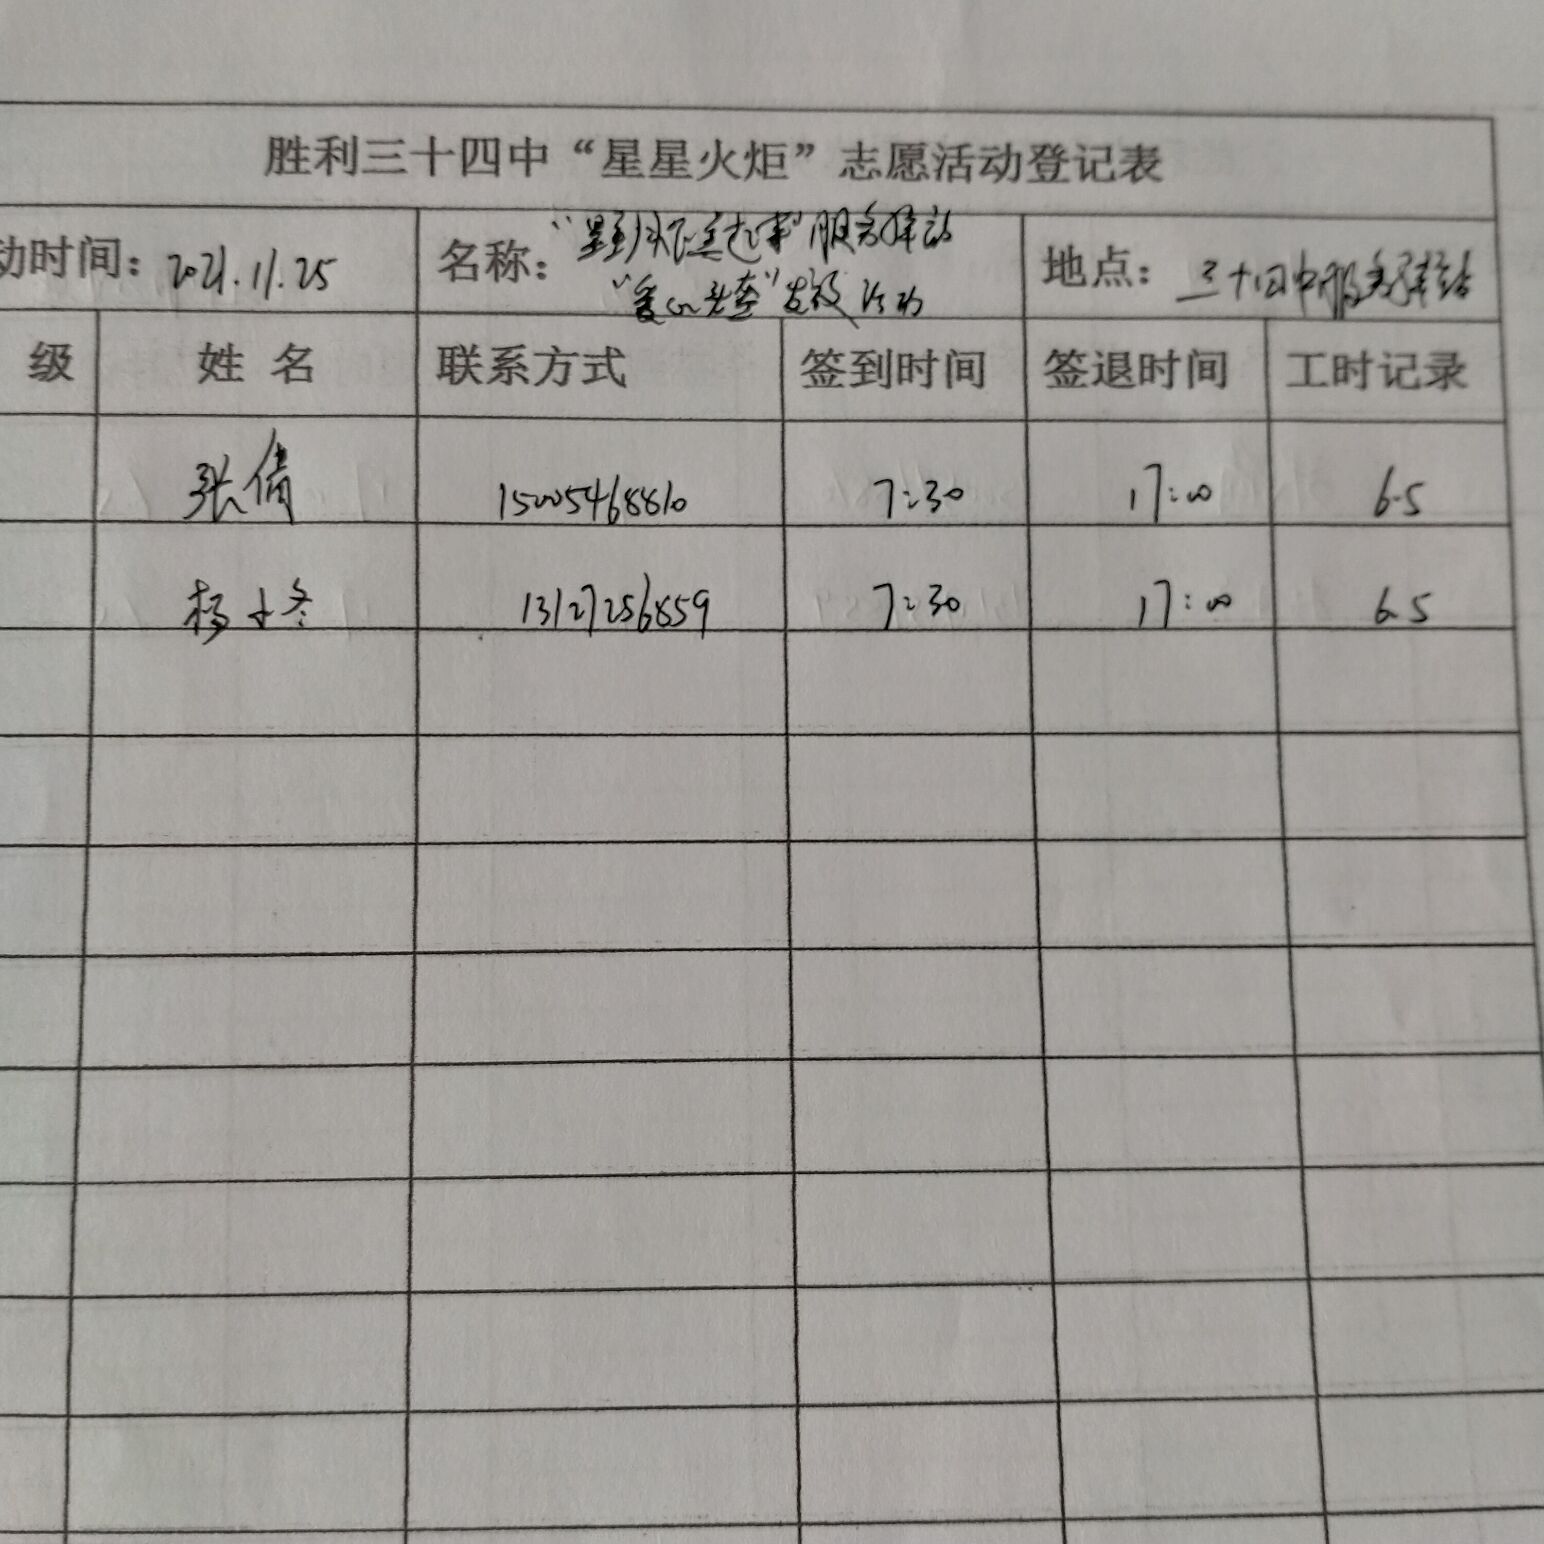 胜利三十四中“星星火炬”志愿活动登记表
动时间：2021.11.25 名称：服务驿站 地点：三十四中服务驿站
“爱心头盔”发放活动
级 姓 名 联系方式 签到时间 签退时间 工时记录
张倩 15005468810 7:30 17:00 6.5
杨小冬 13127256859 7:30 17:00 6.5